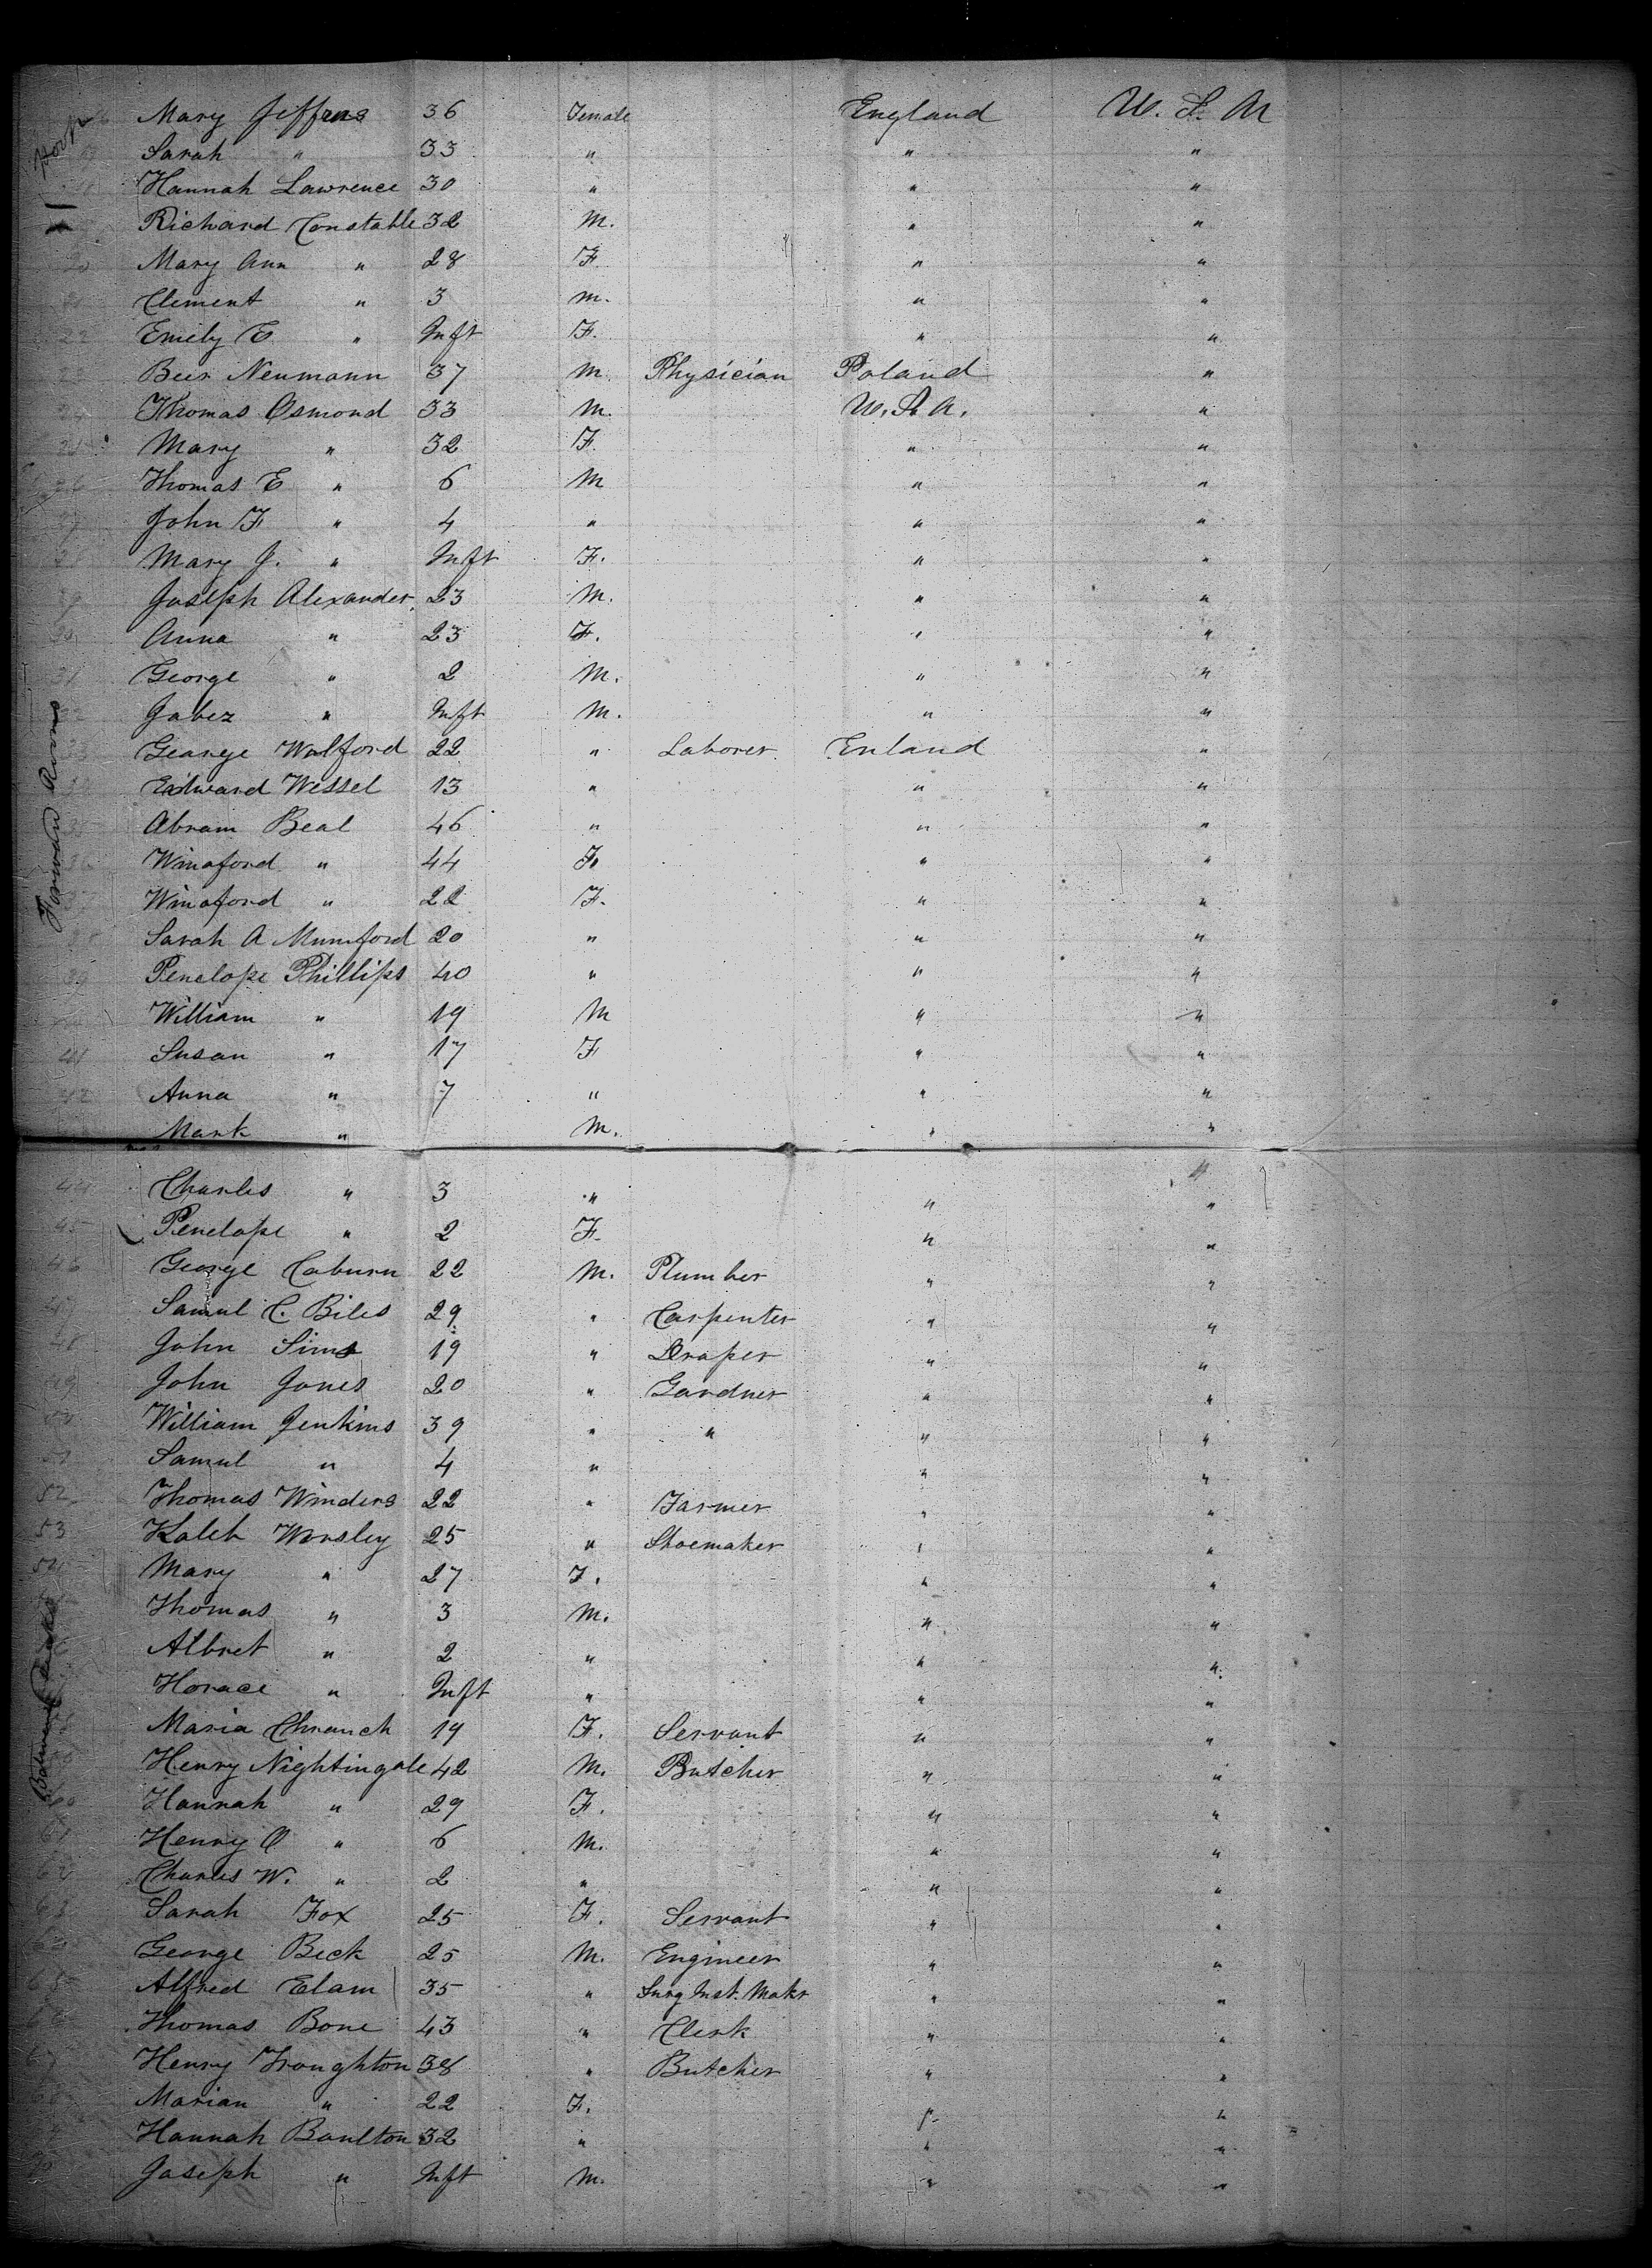 Mary Jeffres 36 Female England U. S. A
Sarah " 33 " " "
Hannah Lawrence 30 " " "
Richard Constable 32 M. " "
Mary Ann " 28 F. " "
Clement " 3 M. " "
Emily E " Inft F. " "
Beer Neumann 37 M. Physician Poland "
Thomas Osmond 33 M. U. S. A. "
Mary " 32 F. " "
26 Thomas E " 6 M " "
John F " 4 " " "
28 Mary J. " Inft F. " "
Joseph Alexander 23 M. " "
Anna " 23 F. " "
31 George " 2 M. " "
Jabez " Inft M. " "
33 Gearge Walford 22 " Laborer Enland "
Edward Wessel 13 " " "
35 Abram Beal 46 " " "
36 Winaford " 44 F. " "
37 Winaford " 22 F. " "
Sarah A Mumford 20 " " "
39 Penelope Phillips 40 " " "
William " 19 M " "
41 Susan " 17 F " "
42 Anna " 7 " " "
Mark " M. " "
44 Charles " 3 " " "
45 Penelope " 2 F. " "
46 George Coburn 22 M. Plumber " "
47 Samul C. Biles 29 " Carpenter " "
48 John Sims 19 " Draper " "
49 John Jones 20 " Gardner " "
50 William Jenkins 39 " " " "
51 Samul " 4 " " "
52 Thomas Winders 22 " Farmer " "
53 Kaleb Worsley 25 " Shoemaker " "
54 Mary " 27 F. " "
Thomas " 3 M. " "
Albret " 2 " " "
Horace " Inft " " "
Maria Chranch 19 F. Servant " "
Henry Nightingale 42 M. Butcher " "
60 Hannah " 29 F. " "
61 Henry O " 6 M. " "
62 Charles W. " 2 " " "
63 Sarah Fox 25 F. Servant " "
64 George Beck 25 M. Engineer " "
65 Alfred Elam 35 " Surg Inst. Makr " "
66 Thomas Bone 43 " Clerk " "
67 Henry Troughton 38 " Butcher " "
68 Marian " 22 F. " "
Hannah Boulton 32 " " "
70 Joseph " Inft M. " "
Forward Rooms